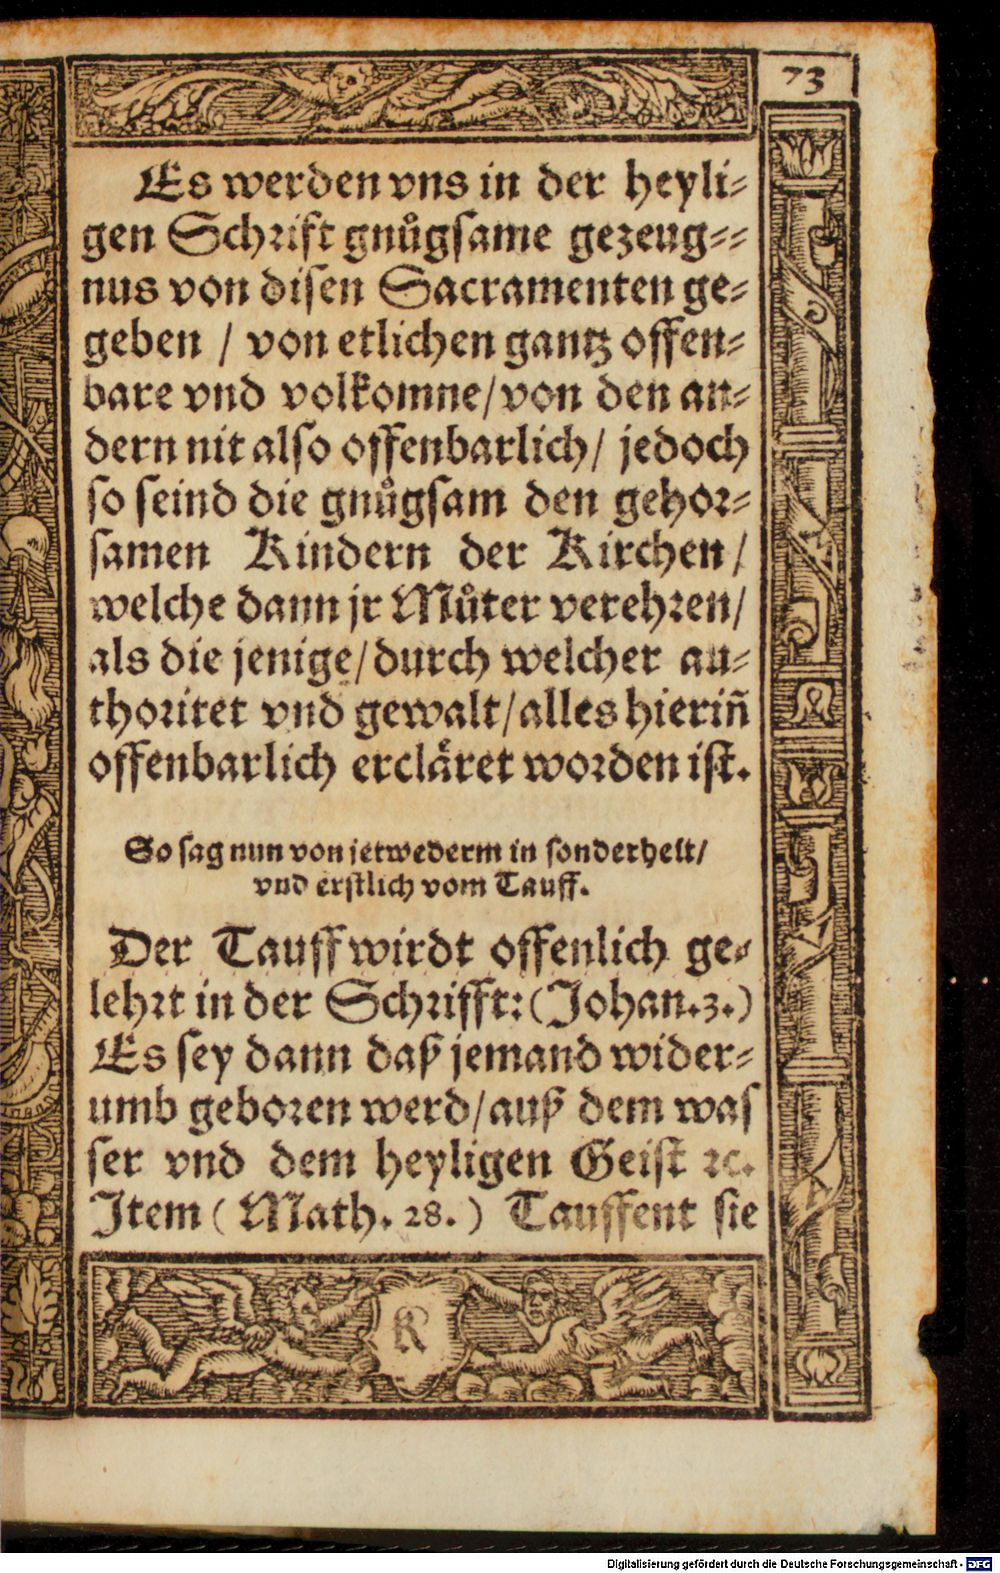 73
Es werden vns in der heyli⸗
gen Schrift gnůgsame gezeug⸗⸗
nus von disen Sacramenten ge⸗
geben / von etlichen gantz offen⸗
bare vnd volkomne/ von den an⸗
dern nit also offenbarlich/ jedoch
so seind die gnůgsam den gehor⸗
samen Kindern der Kirchen/
welche dann jr Můter verehren/
als die jenige/ durch welcher au⸗
thoritet vnd gewalt/ alles hieriñ
offenbarlich ercläret worden ist.
So sag nun von jetwederm in sonderheit/
vnd erstlich vom Tauff.
Der Tauff wirdt offenlich ge⸗
lehrt in der Schrifft: (Johan.3.)
Es sey dann daß jemand wider⸗
umb geboren werd/ auß dem was
ser vnd dem heyligen Geist ꝛc.
Item ( Math. 28. ) Tauffent sie
K
Digitalisierung gefördert durch die Deutsche Forschungsgemeinschaft - DFG